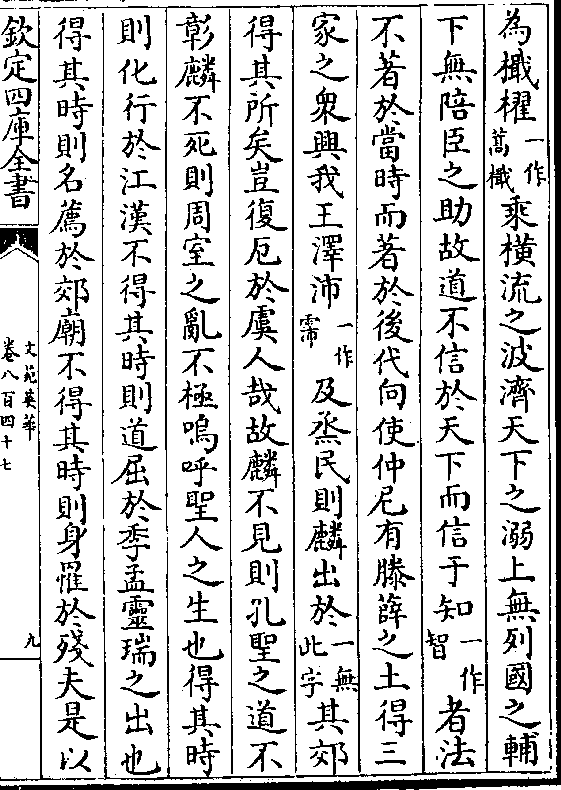 為檝櫂一作蒿檝乘橫流之波濟天下之溺上無列國之輔
下無陪臣之助故道不信於天下而信于知一作智者法
不著於當時而著於後代向使仲尼有滕薛之土得三
家之衆興我王澤沛一作霈及烝民則麟出於一無此字其郊
得其所矣豈復厄於虞人哉故麟不見則孔聖之道不
彰麟不死則周室之亂不極嗚呼聖人之生也得其時
則化行於江漢不得其時則道屈於季孟靈瑞之出也
得其時則名薦於郊廟不得其時則身罹於殘夫是以
欽定四庫全書
文苑英華
卷八百四十七
九